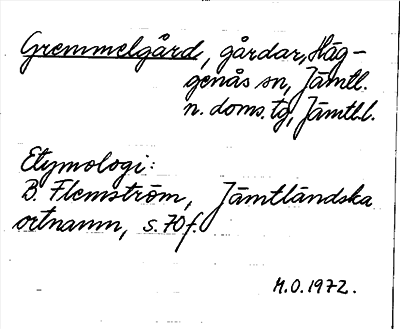 Gremmelgård, gårdar, Häg-
genås sn, Jämtl.
n. doms. tg, Jämtl.l.
Etymologi:
B. Flemström, Jämtländska
ortnamn, s. 70 f.
M.O. 1972.